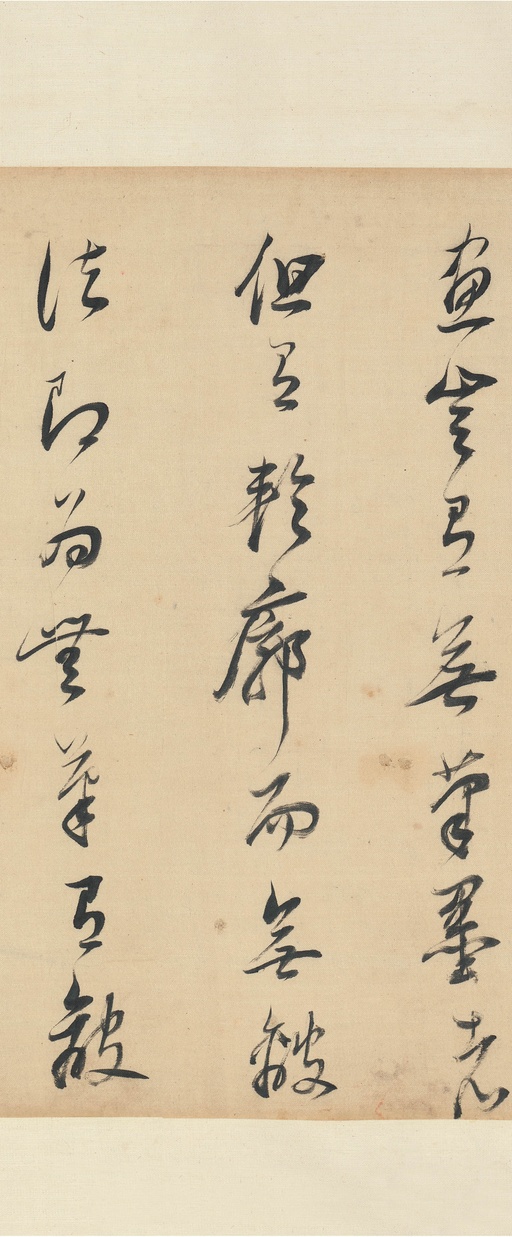 畫豈有無筆墨者
但有輪廓而無皴
法即為無筆有皴